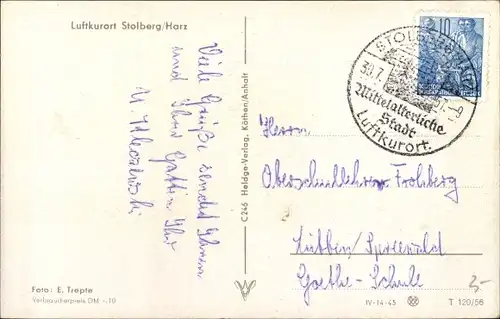 Luftkurort Stolberg/Harz
Viele Grüße sendet Ihnen
und Ihrer Gattin Ihr
Foto: E. Trepte
Verbraucherpreis DM -.10
C 246 Heldge-Verlag, Köthen/Anhalt
10
STOLBERG
30.7.
57.-9
Mittelalterliche
Stadt
Luftkurort.
Herrn
Oberschullehrer Frohberg
Lübben/Spreewald
Goethe-Schule
3,-
IV-14-45
T 120/56